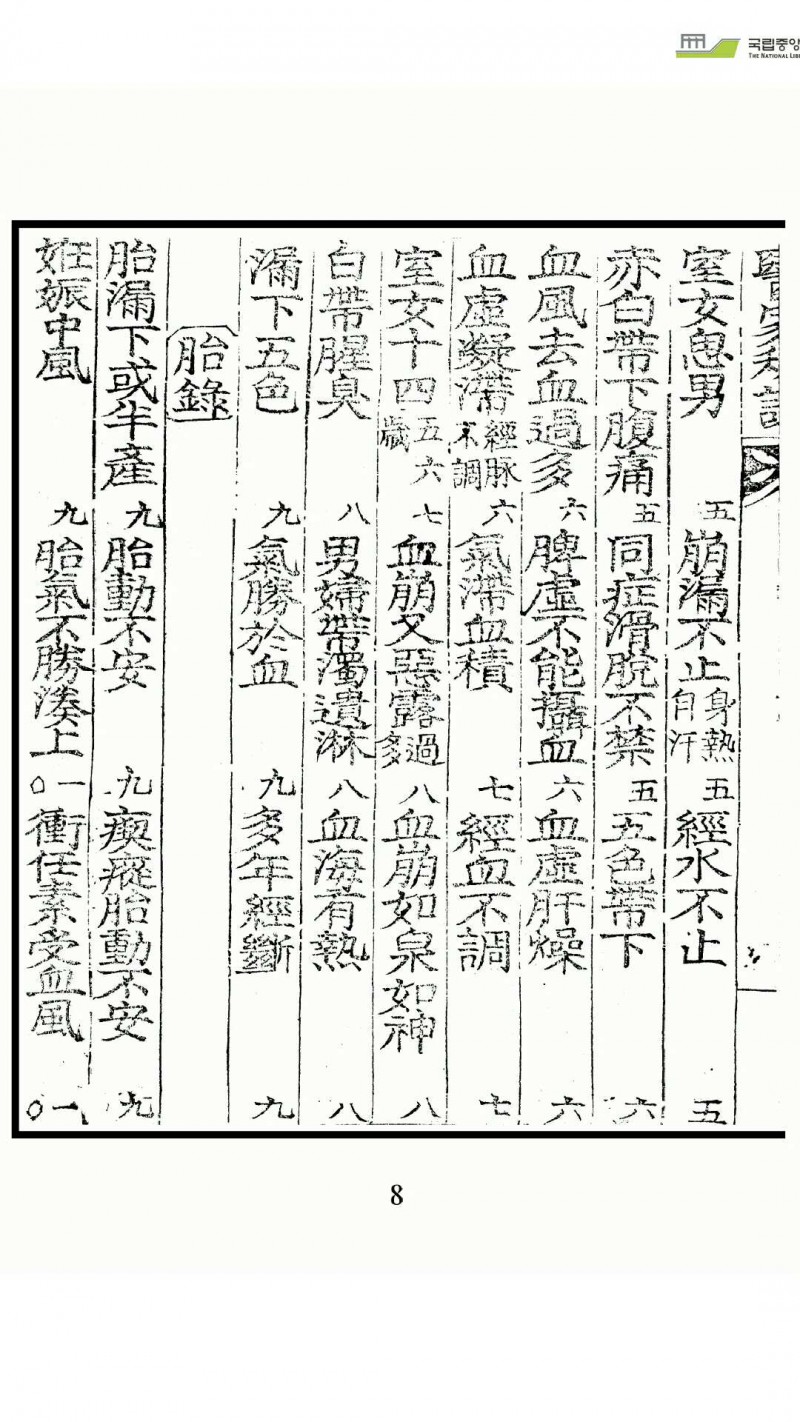 국립중앙
THE NATIONAL LIB
室女思男 五 崩漏不止 身熱自汗 五 經水不止 五
赤白帶下腹痛 五 同症滑脫不禁 五 五色帶下 六
血風去血過多 六 脾虛不能攝血 六 血虛肝燥 六
血虛凝滯 經脉不調 六 氣滯血積 七 經血不調 七
室女十四五六歲 七 血崩又惡露過多 八 血崩如泉如神 八
白帶腥臭 八 男婦帶濁遺淋 八 血海有熱 八
漏下五色 九 氣勝於血 九 多年經斷 九
胎錄
胎漏下或半產 九 胎動不安 九 瘈瘲胎動不安 九
妊娠中風 九 胎氣不勝湊上 一〇 衝任素受血風 一〇
8